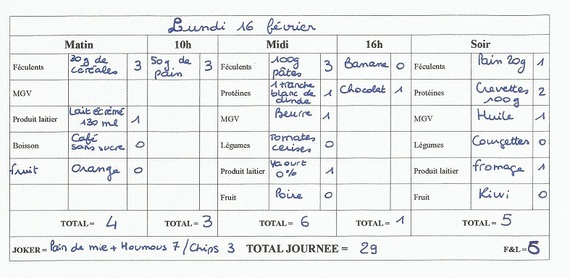 Lundi 16 février
Matin 10h Midi 16h Soir
Féculents 30g de céréales 3 50g de pain 3 Féculents 100g pâtes 3 Banane 0 Féculents Pain 20g 1
MGV Protéines 1 tranche blanc de dinde 1 Chocolat 1 Protéines Crevettes 100g 2
Produit laitier Lait écrémé 130 ml 1 MGV Beurre 1 MGV Huile 1
Boisson Café sans sucre 0 Légumes Tomates cerises 0 Légumes Courgettes 0
fruit Orange 0 Produit laitier Yaourt 0% 1 Produit laitier fromage 1
Fruit Poire 0 Fruit Kiwi 0
TOTAL= 4 TOTAL = 3 TOTAL = 6 TOTAL = 1 TOTAL = 5
JOKER= Pain de mie + Houmous 7 / Chips 3 TOTAL JOURNEE = 29 F&L= 5